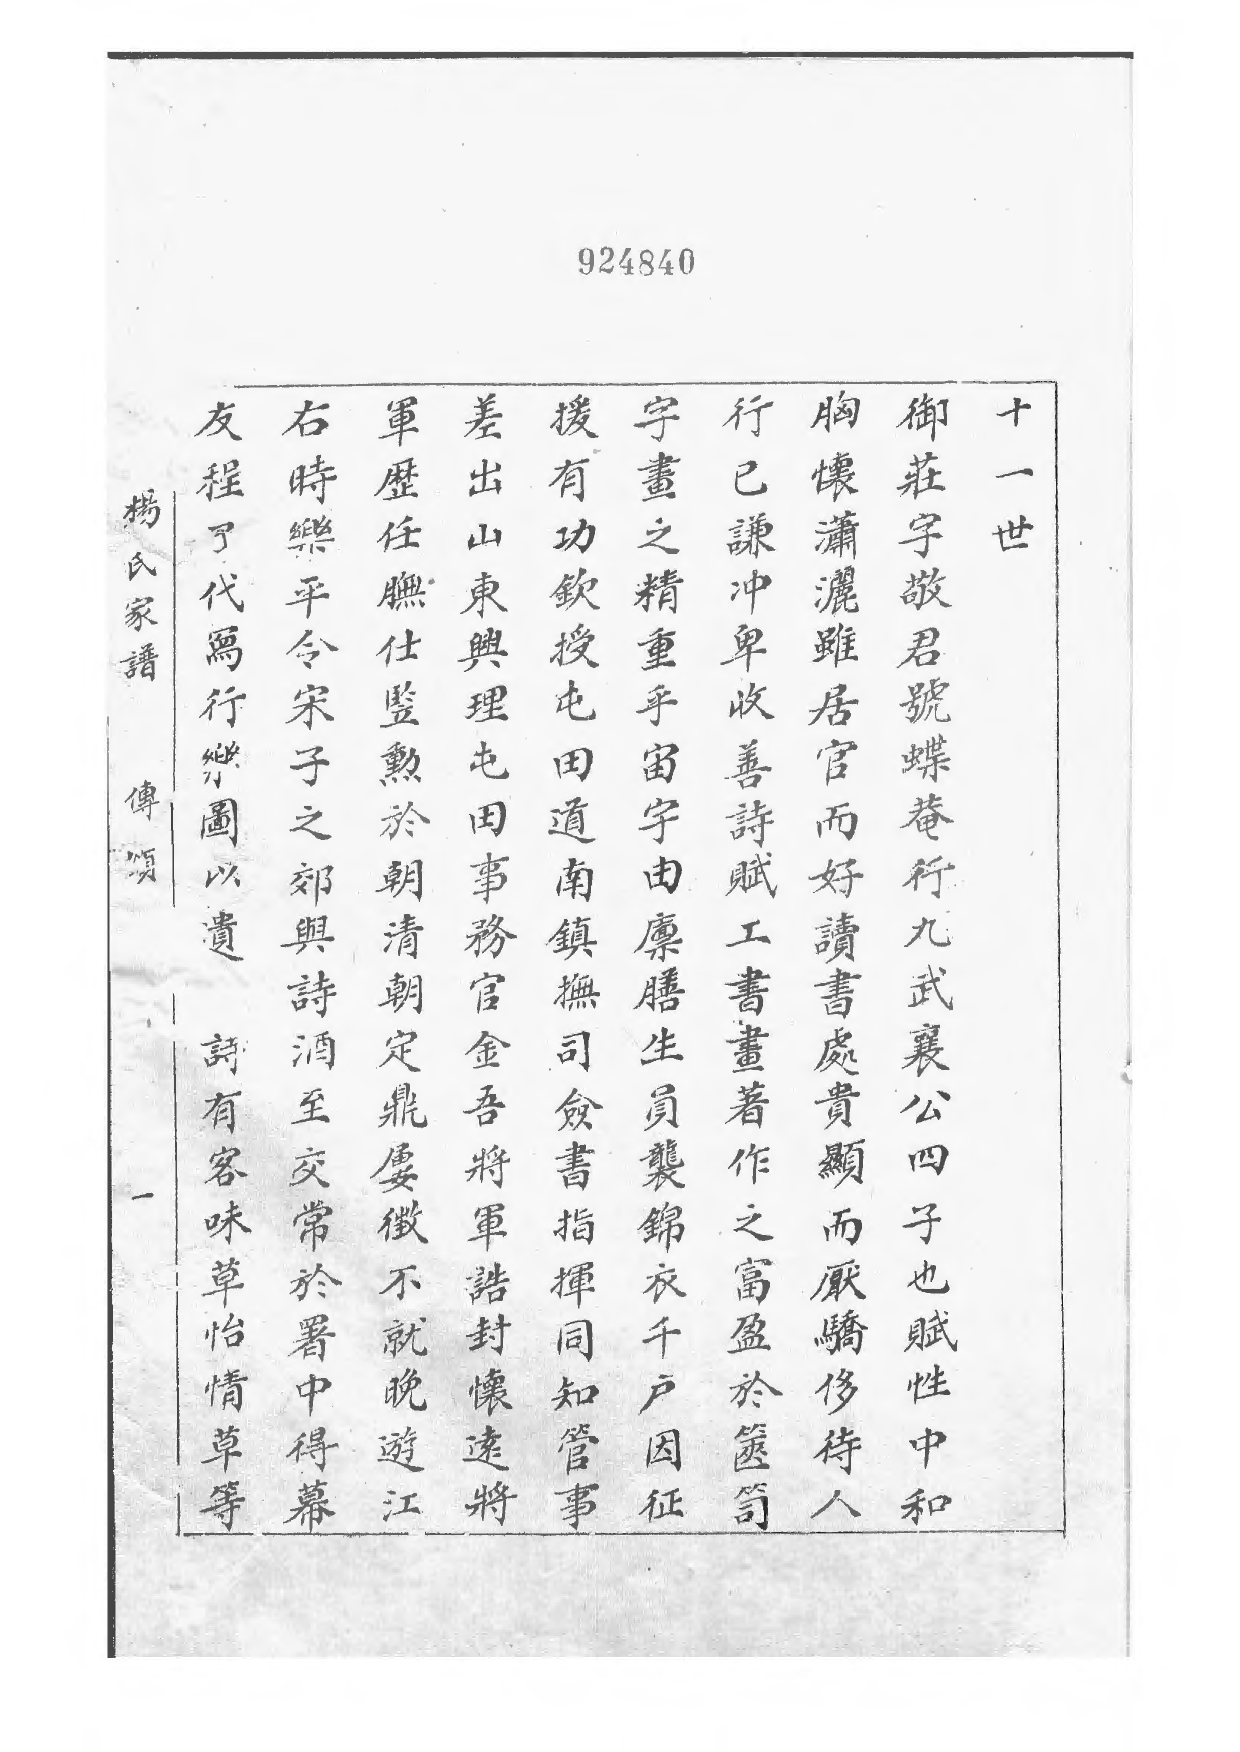 924840
十一世
御莊字敬君號蝶菴行九武襄公四子也賦性中和
胸懷瀟灑雖居官而好讀書處貴顯而厭驕侈待人
行已謙冲卑收善詩賦工書畫著作之富盈於篋笥
字畫之精重乎宙字由廪膳生員襲錦衣千户因征
援有功欽授屯田道南鎮撫司僉書指揮同知管事
差出山東興理屯田事務官金吾將軍誥封懷遠將
軍歷任膴仕監勳於朝清朝定鼎屢徵不就晚遊江
右時樂平令宋子之郊與詩酒至交常於署中得幕
友程了代寫行樂圖以遺 詩有客味草怡情草等
楊氏家譜 傳頌 一